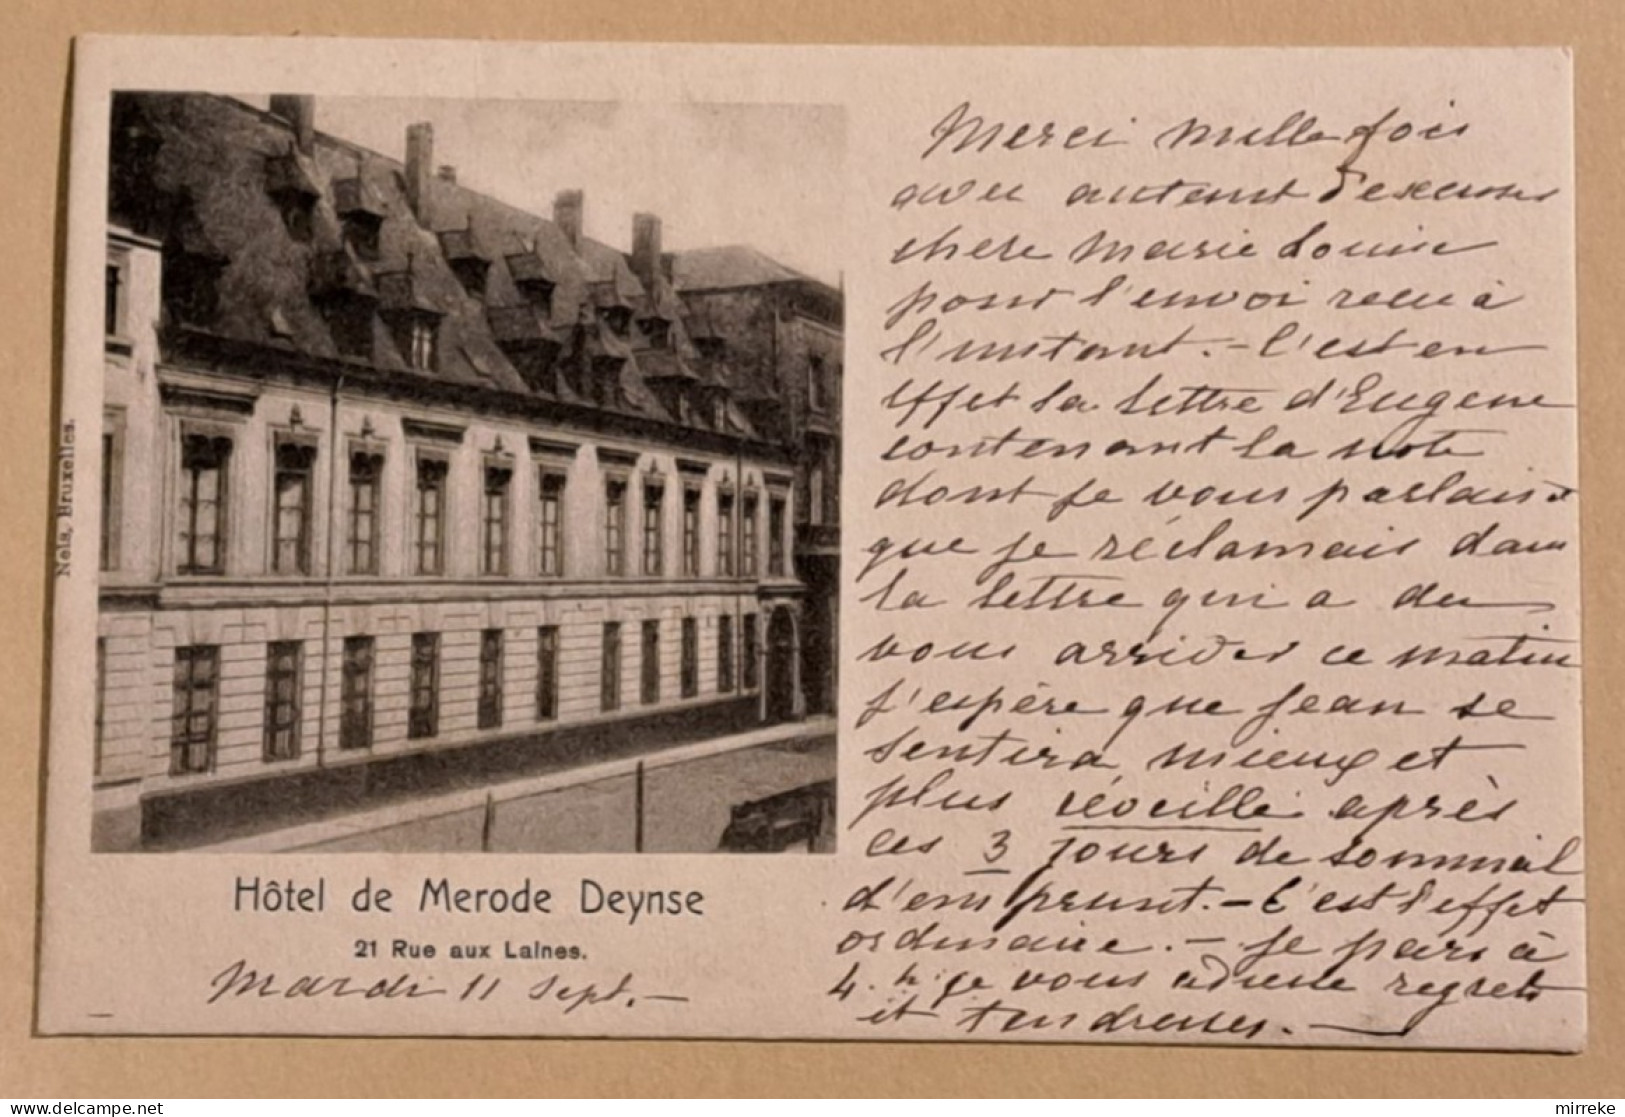 Nels, Bruxelles.
Hôtel de Merode Deynse
21 Rue aux Laines.
Mardi 11 Sept. —
Merci mille fois
avec autant d'excuses
chère Marie Louise
pour l'envoi recu à
l'instant. — C'est en
effet la lettre d'Eugene
contenant la note
dont je vous parlais &
que je réclamais dans
la lettre qui a du
vous arriver ce matin
J'espère que Jean se
sentira mieux et
plus réveillé après
ces 3 jours de sommeil
d'emprunt. — C'est l'effet
ordinaire. — Je pars à
4. h je vous adresse regrets
et tendresses. —
mirreke